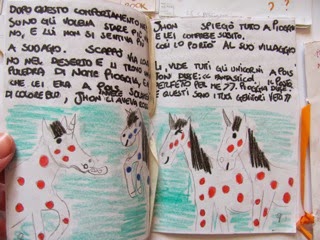 DOPO QUESTO COMPORTAMENTO
SUNO GLI VOLEVA STARE PIÙ
NO, E LUI NON SI SENTIVA PIÙ
A SUO AGIO. SCAPPÒ VIA
NO NEL DESERTO E LÌ TROVÒ
PULEDRA DI NOME PIOGGIA, E
CHE LEI ERA A POIS
DI COLORE BLU, JHON CI AVEVA
JHON SPIEGÒ TUTTO A PIOGGIA
E LEI CORRESE SUBITO.
COSÌ LO PORTÒ AL SUO VILLAGGIO
VIDE TUTTI GLI UNICORNI A POIS
DISSE: << FANTASTICO! IL POSTO
PERFETTO PER ME >>. PIOGGIA DISSE
E QUESTI SONO I TUOI GENITORI VERI >>